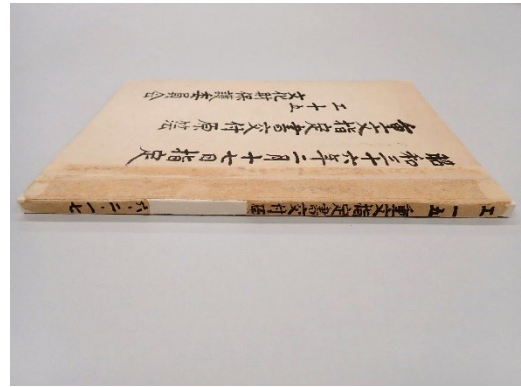 昭和三十六年二月十七日指定
重文指定書交付原
工十五
文化財保護委員会
工 一五 重文指定書交付 六・二・一七